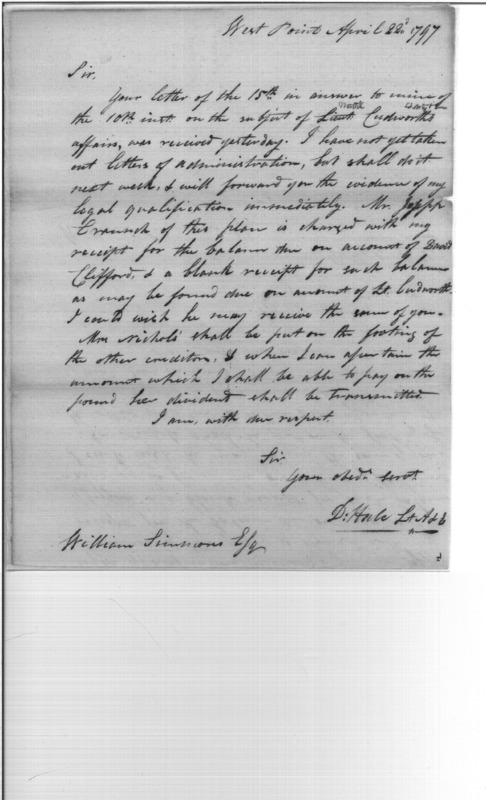 West Point April 22d 1797
Sir.
Your letter of the 15th in answer to mine of
the 10th inst. on the subject of Lieut Cudworth's
affairs, was received yesterday. I have not yet taken
out letters of administration, but shall do it
next week, & will forward you the evidence of my
legal qualification immediately. Mr. Joseph
Cranch of this place is charged with my
receipt for the balance due on account of David
Clifford, & a blank receipt for such balance
as may be found due on amount of Lt. Cudworth.
I could wish he may receive the same of you.
Mrs Nichols shall be put on the footing of
the other creditors, & when I can ascertain the
amount which I shall be able to pay on the
pound her dividend shall be transmitted
I am, with due respect.
Sir
Your obedt. Servt.
D: Hale Lt
William Simmons Esq